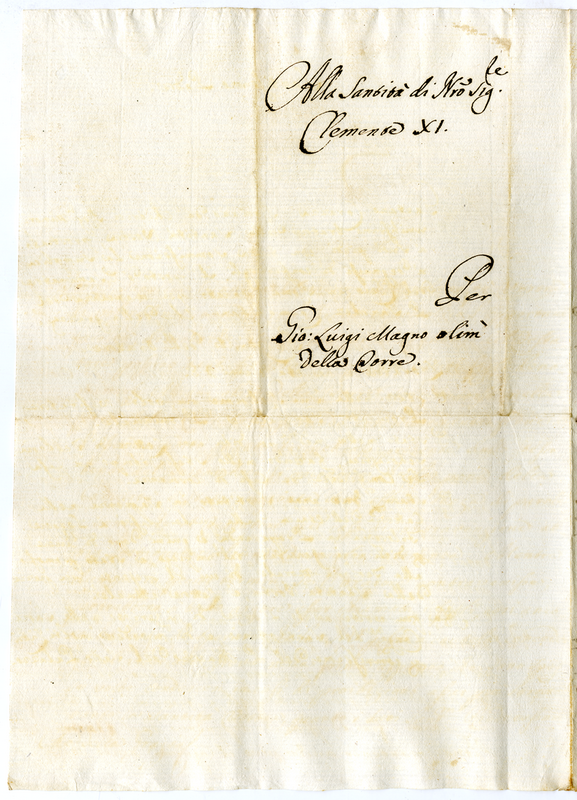 Alla Santità di Nro Sig.re
Clemente XI.
Per
Gio: Luigi Magno olim
della Torre.